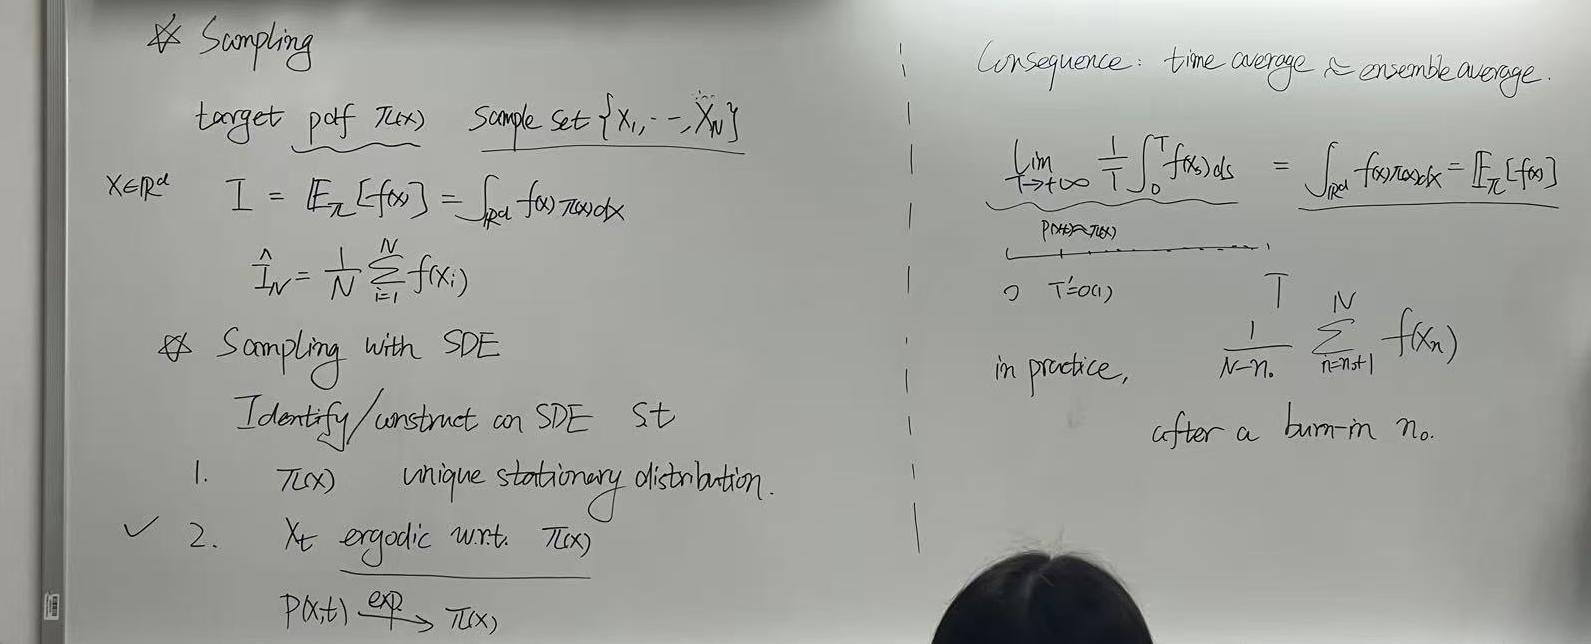 ☆ Sampling
target pdf π(x) sample set {X₁, --, X_N}
X∈ℝᵈ I = 𝔼_π[f(x)] = ∫_ℝᵈ f(x)π(x)dx
Î_N = 1/N ∑_{i=1}^N f(x_i)
☆ Sampling with SDE
Identify/construct an SDE s.t
1. π(x) unique stationary distribution.
✓ 2. X_t ergodic w.r.t. π(x)
P(x,t) exp→ π(x)
Consequence: time average ≈ ensemble average.
lim_{T→+∞} 1/T ∫_0^T f(x_s)ds = ∫_ℝᵈ f(x)π(x)dx = 𝔼_π[f(x)]
P(x,t)≈π(x)
0 T'=O(1) T
in practice, 1/(N-n₀) ∑_{n=n₀+1}^N f(x_n)
after a burn-in n₀.